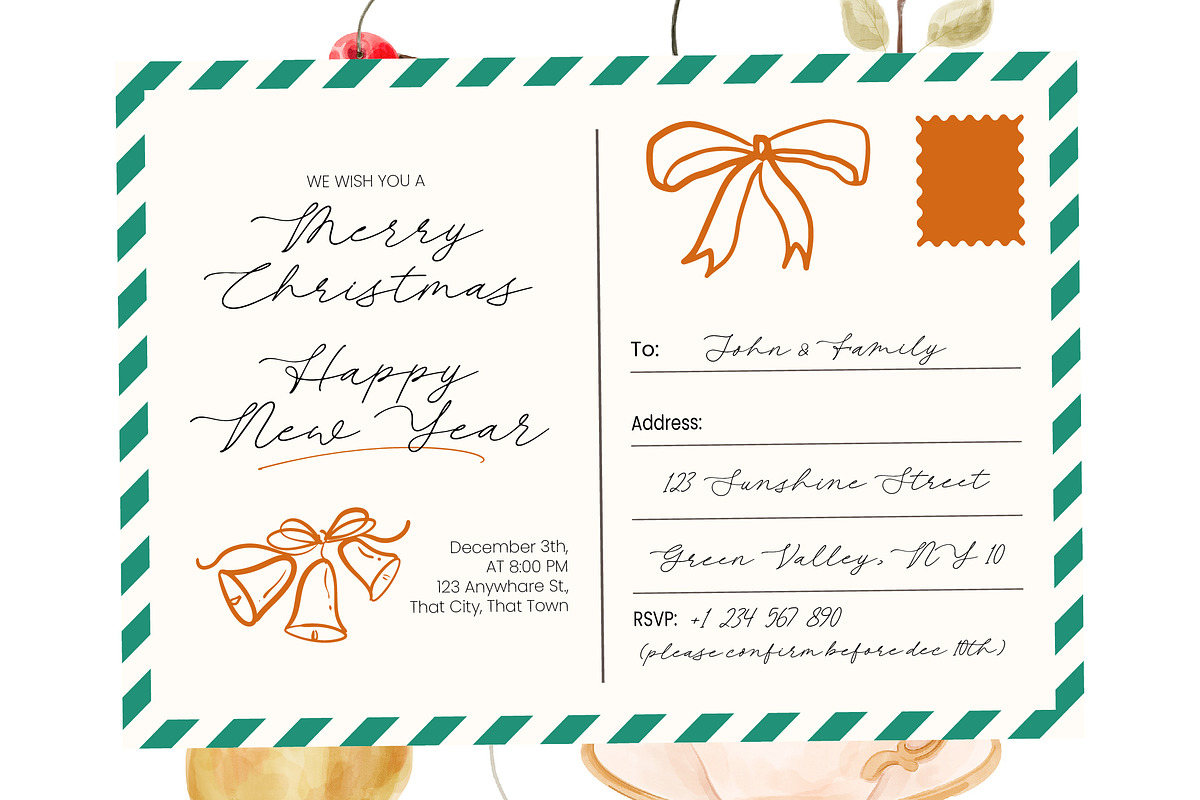 WE WISH YOU A
Merry
Christmas
Happy
New Year
December 3th,
AT 8:00 PM
123 Anywhare St.,
That City, That Town
To: John & Family
Address:
123 Sunshine Street
Green Valley, NY 10
RSVP: +1 234 567 890
(please confirm before dec 10th)